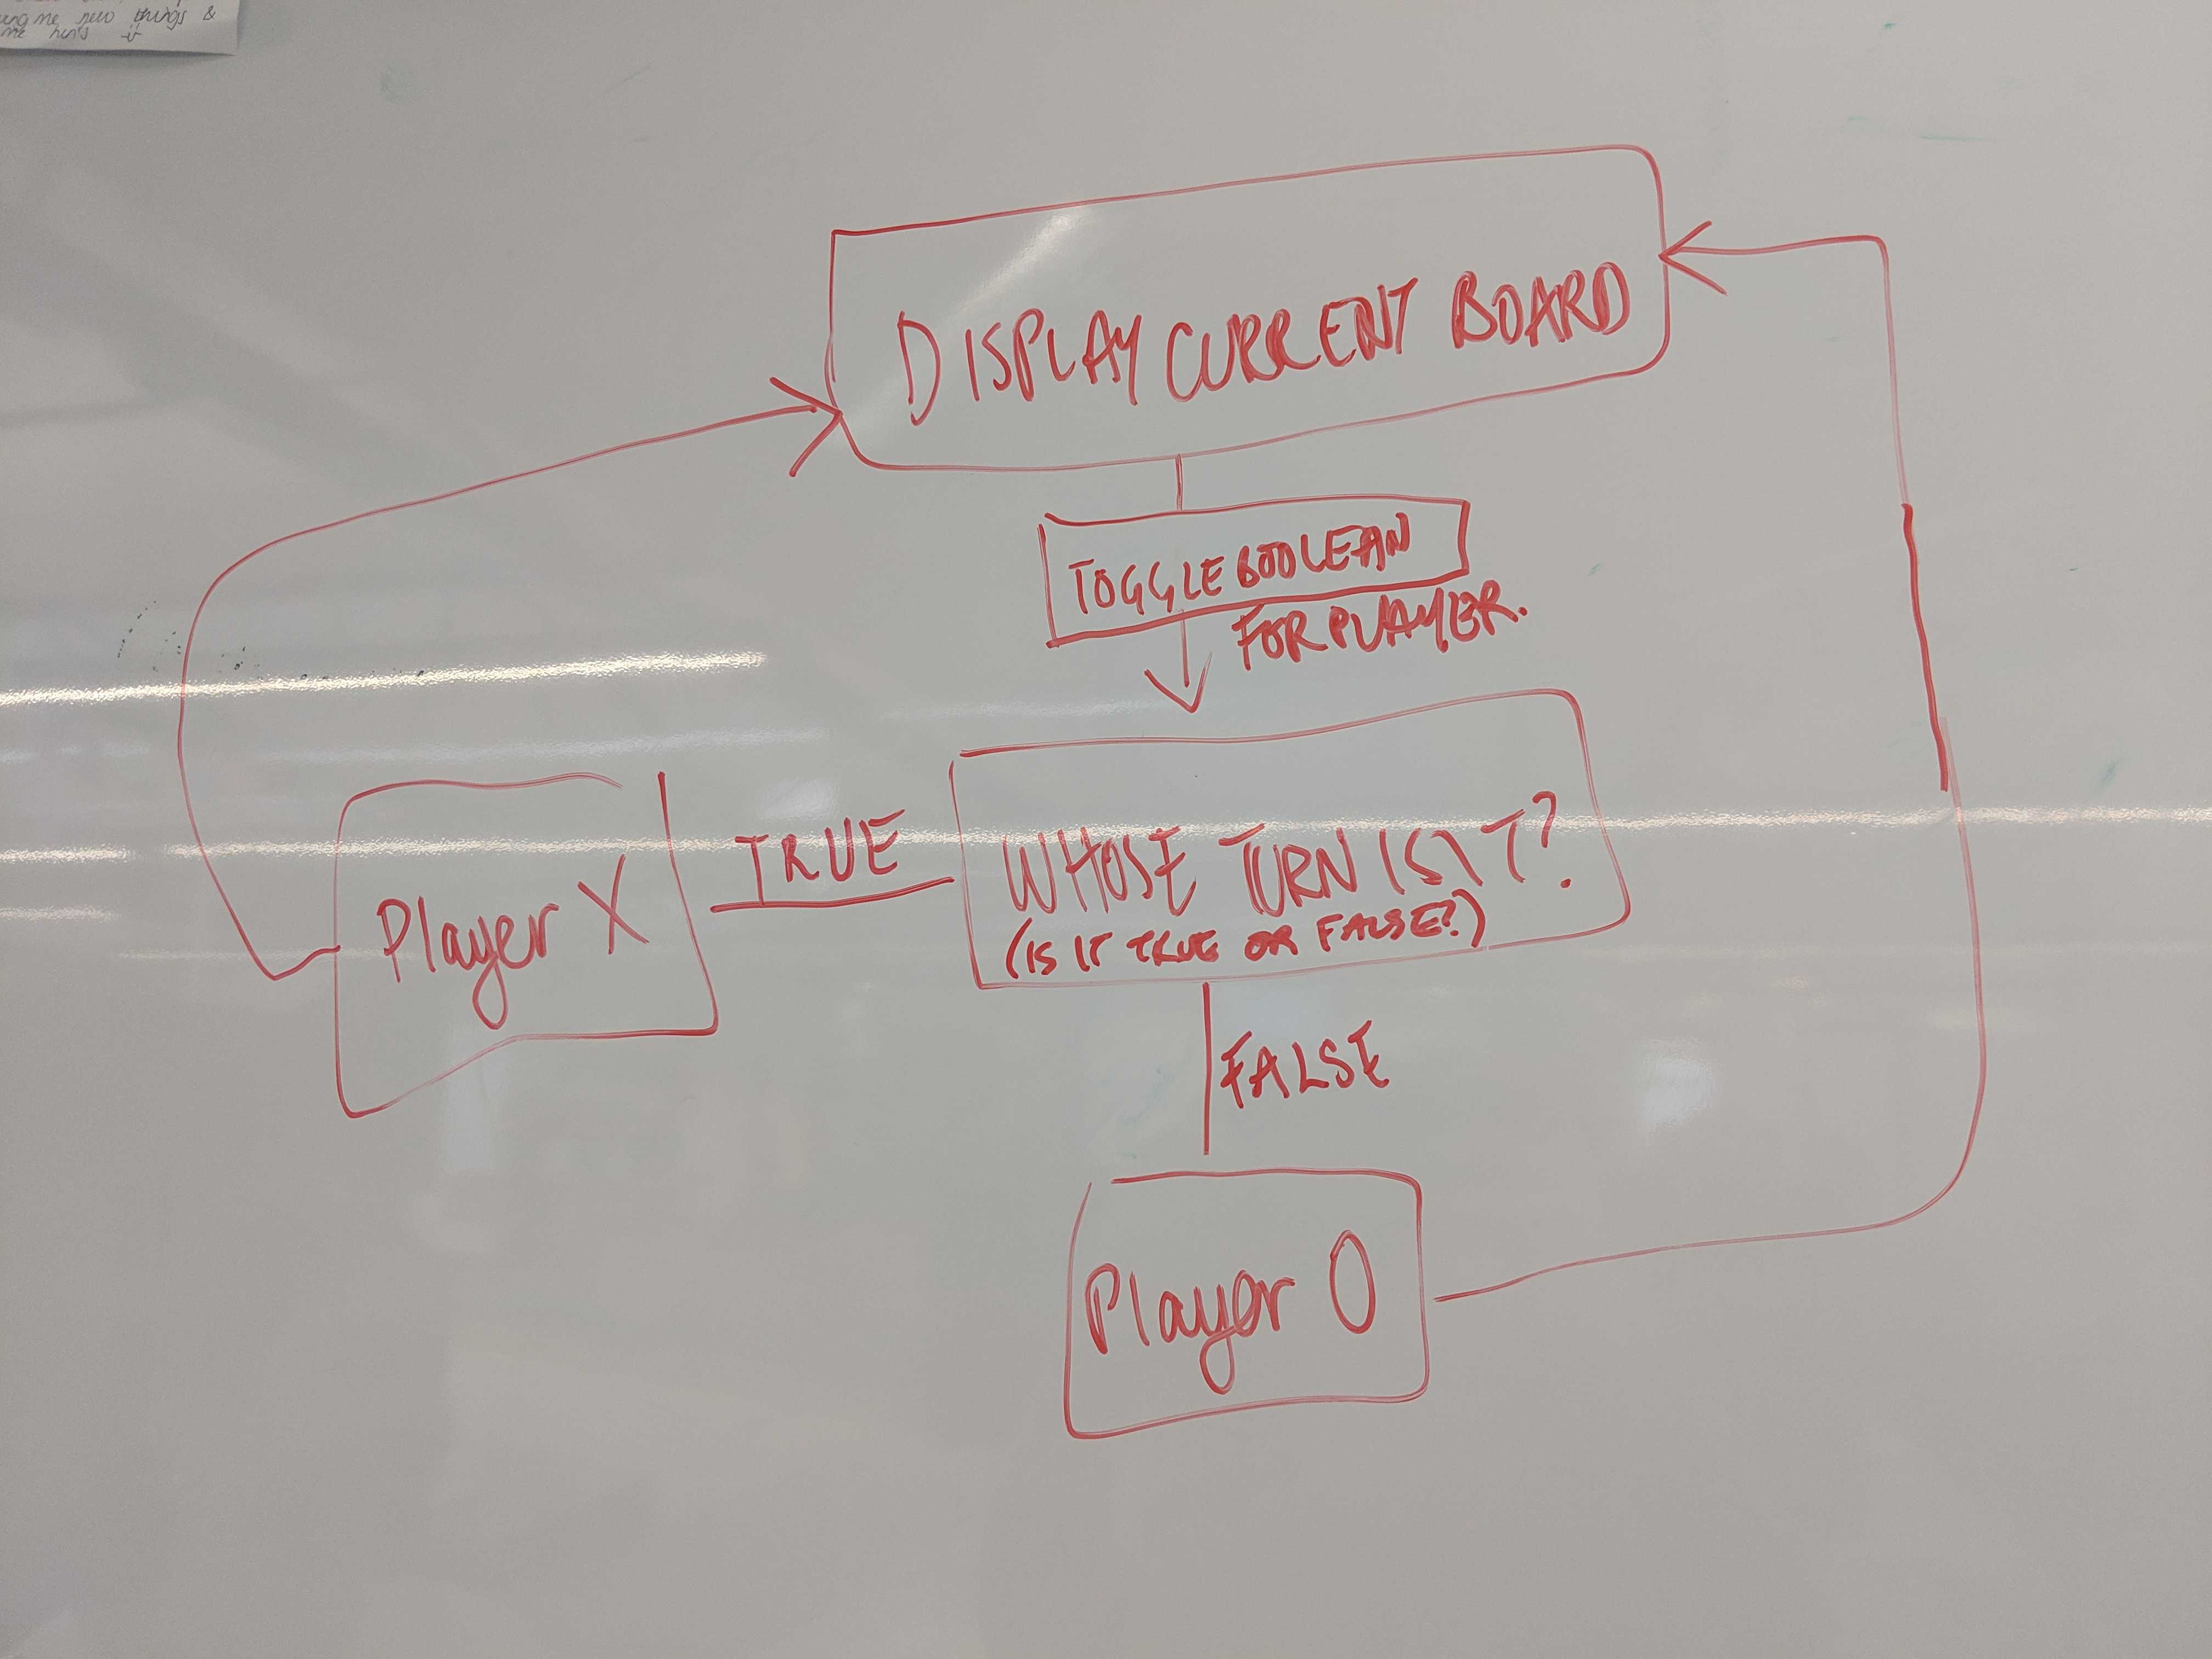 me new things &
me
DISPLAY CURRENT BOARD
TOGGLE BOOLEAN
FOR PLAYER.
WHOSE TURN IS IT?
(IS IT TRUE OR FALSE?)
TRUE
Player X
FALSE
Player O